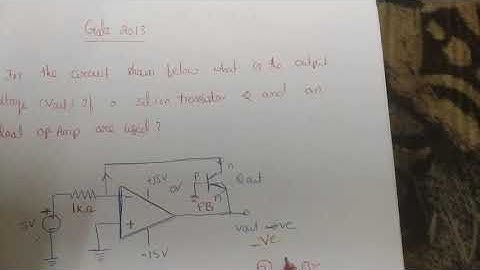 Gate 2013
For the circuit shown below what is the output
voltage (Vout) if a silicon transistor Q and an
ideal op-Amp are used?
+15V
0V
P
n
Qout
1KΩ
-
+
FB
n
5V
-15V
Vout
-ve